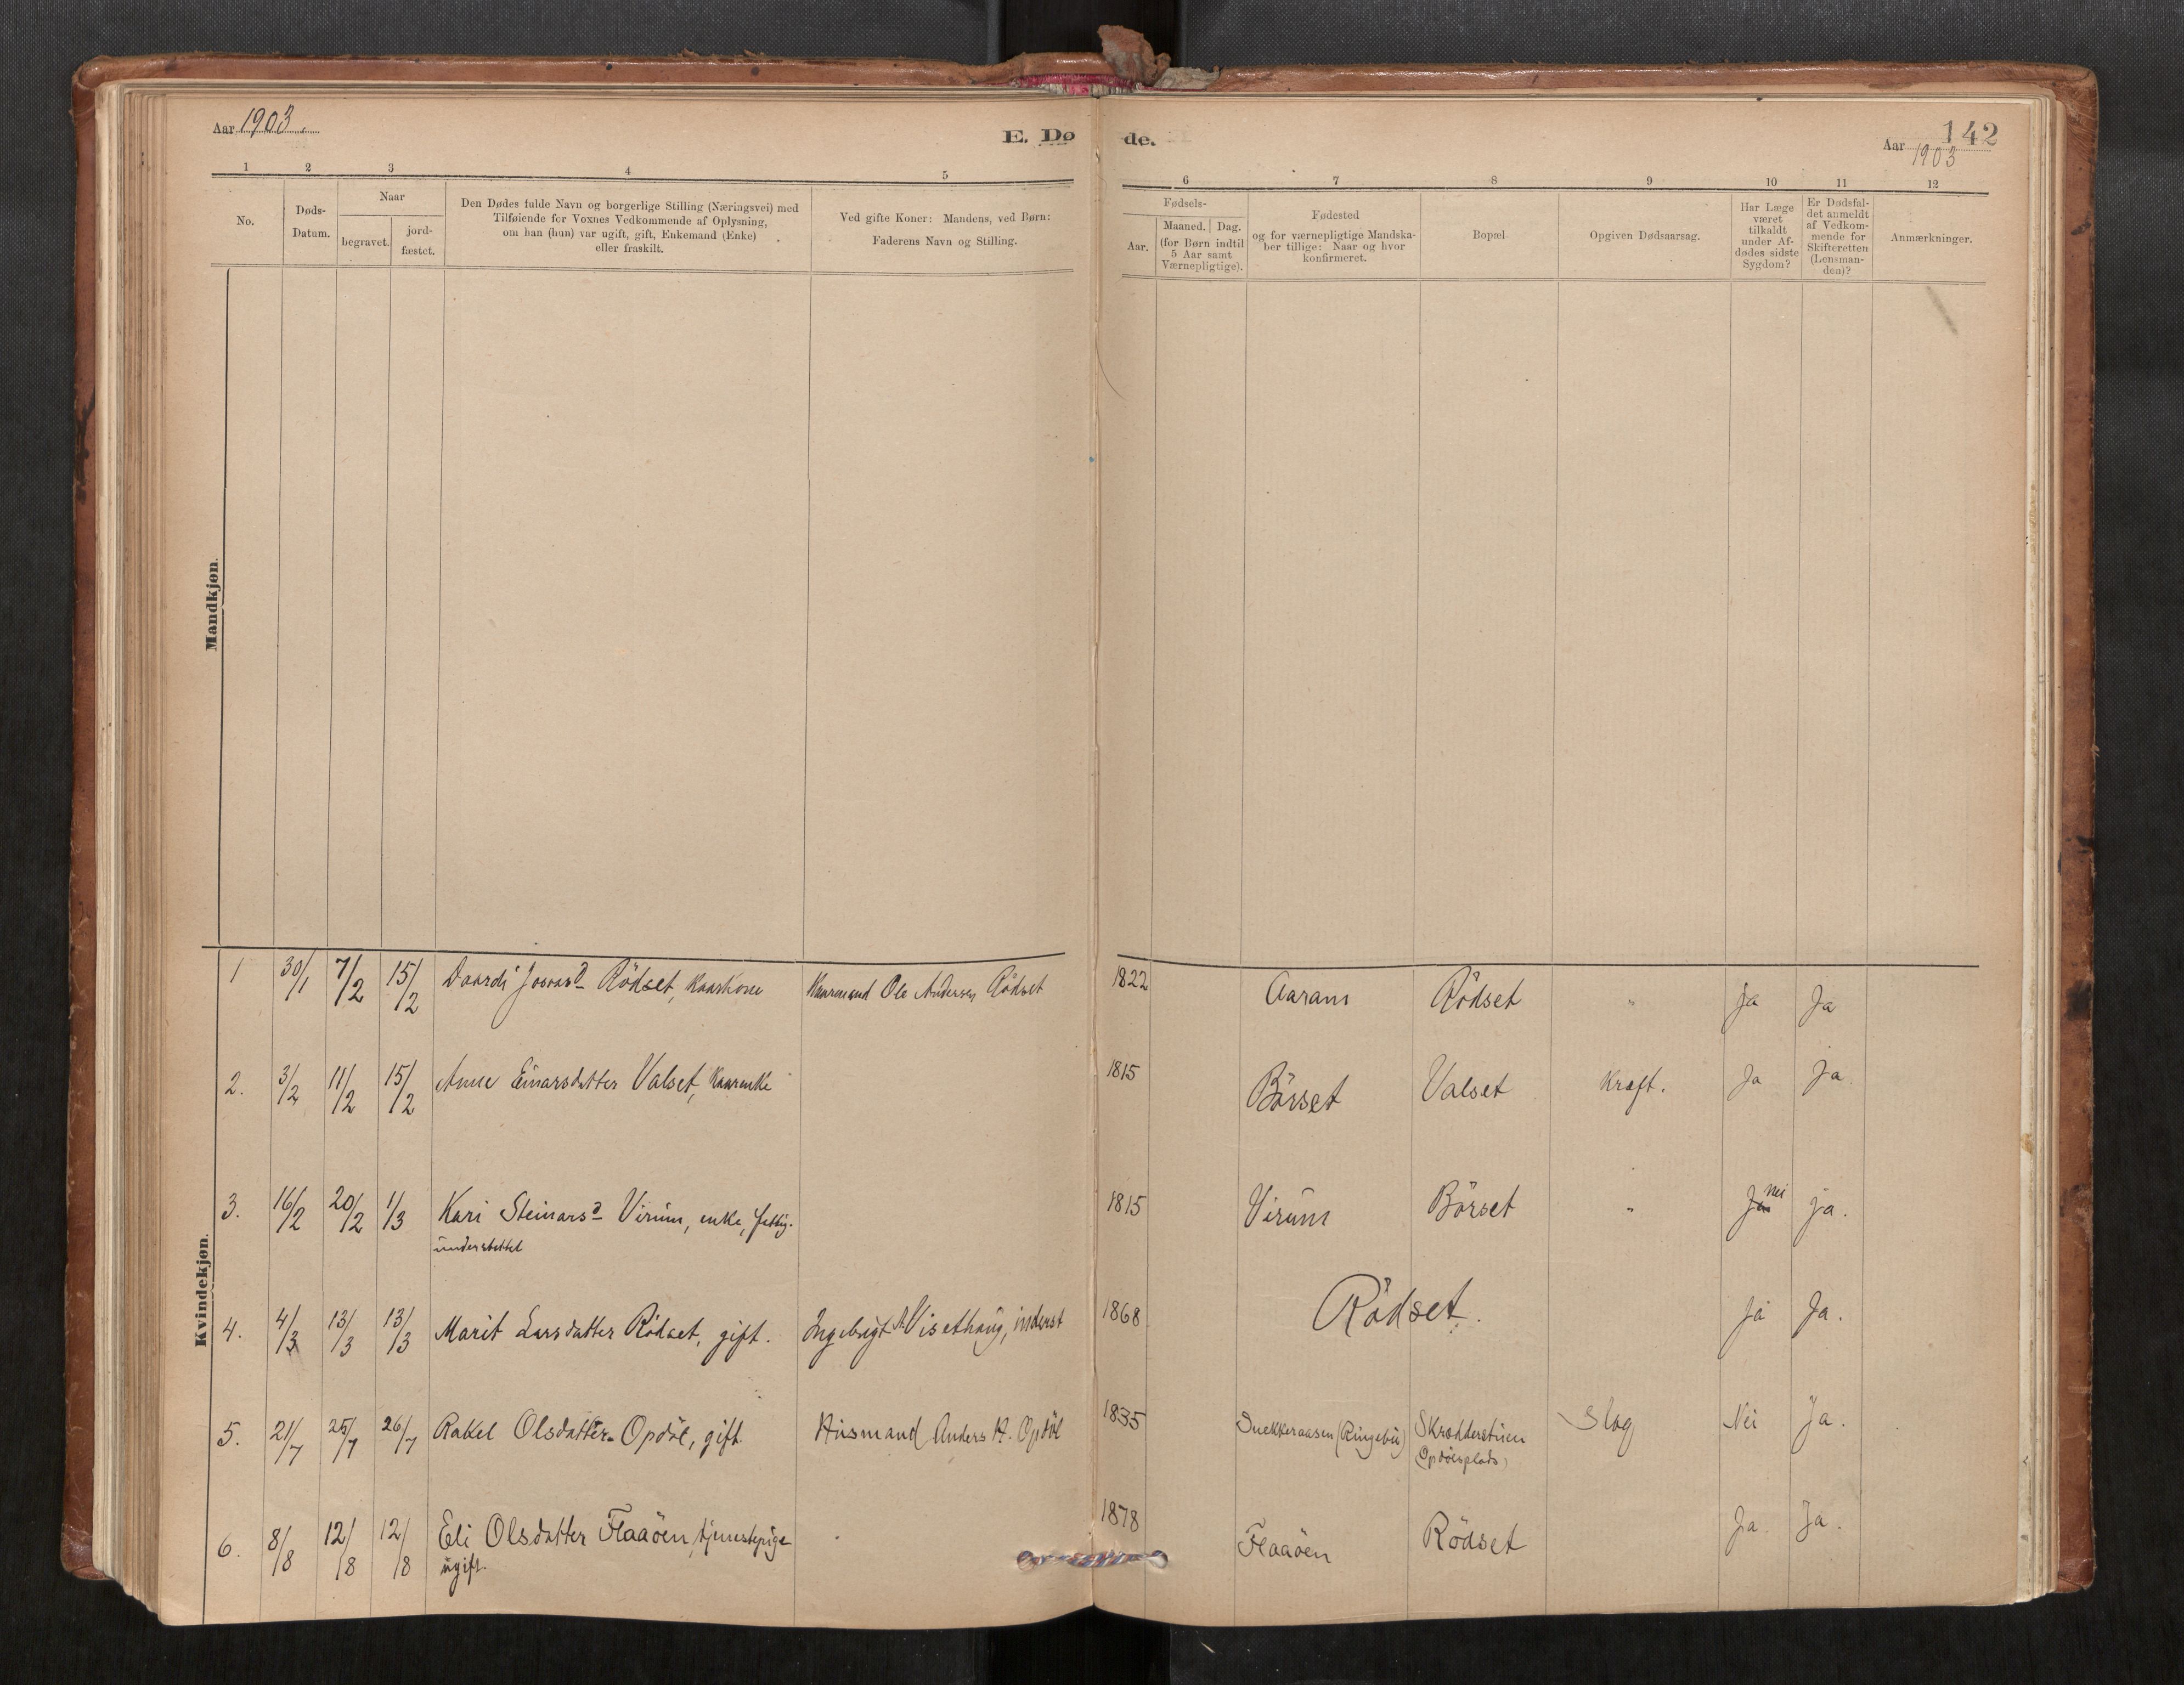 Aar 1903.
E. Dø de.
142
Aar 1903
1 2 3 4 5 6 7 8 9 10 11 12
No.
Døds-
Datum.
Naar
begravet.
jord-
fæstet.
Den Dødes fulde Navn og borgerlige Stilling (Næringsvei) med
Tilføiende for Voxnes Vedkommende af Oplysning,
om han (hun) var ugift, gift, Enkemand (Enke)
eller fraskilt.
Ved gifte Koner: Mandens, ved Børn:
Faderens Navn og Stilling.
Fødsels-
Aar.
Maaned. Dag.
(for Børn indtil
5 Aar samt
Værnepligtige).
Fødested
og for værnepligtige Mandska-
ber tillige: Naar og hvor
konfirmeret.
Bopæl
Opgiven Dødsaarsag.
Har Læge
været
tilkaldt
under Af-
dødes sidste
Sygdom?
Er Dødsfal-
det anmeldt
af Vedkom-
mende for
Skifteretten
(Lensman-
den)?
Anmærkninger.
Mandkjøn.
Kvindekjøn.
1 30/1 7/2 15/2 Rödset, Kaarkone Kaarmand Ole Andersen Rödset 1822 Aaram Rödset " Ja Ja
2. 3/2 11/2 15/2 Anne Einarsdatter Valset, Kaarenke 1815 Börset Valset Kræft. Ja Ja
3. 16/2 20/2 1/3 Kari Steinarsd Virum, enke, fattig-
understøttet 1815 Virum Börset " Ja nei ja.
4. 4/3 13/3 13/3 Marit Larsdatter Rödset, gift. Ingebrigt Visethaug, inderst 1868 Rödset. Ja Ja.
5. 21/7 25/7 26/7 Rakel Olsdatter Opdöl, gift. Husmand Anders H. Opdöl 1835 Snekkeraasen (Ringebu) Skrædderstuen
(Opdölsplads) Slag Nei Ja.
6. 8/8 12/8 12/8 Eli Olsdatter Flaaöen, tjenestepige
ugift. 1878 Flaaöen Rödset Ja. Ja.